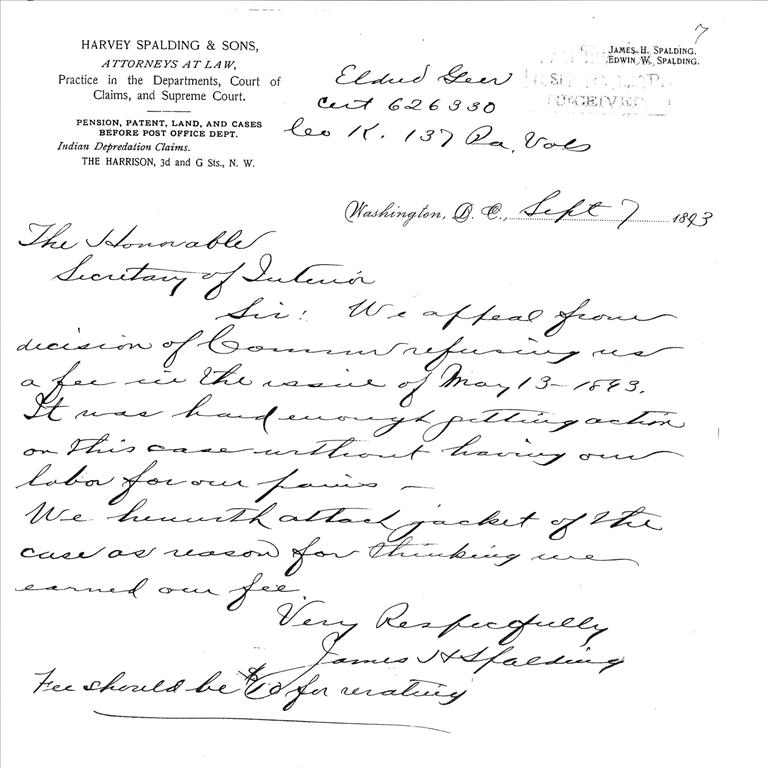 7
HARVEY SPALDING & SONS,
ATTORNEYS AT LAW,
Practice in the Departments, Court of
Claims, and Supreme Court.
PENSION, PATENT, LAND, AND CASES
BEFORE POST OFFICE DEPT.
Indian Depredation Claims.
THE HARRISON, 3d and G Sts., N. W.
JAMES H. SPALDING.
EDWIN W. SPALDING.
RECEIVED
Eldred Geer
Cert 626330
Co K. 137 Pa. Vols
Washington, D. C., Sept 7 1893
The Honorable
Secretary of Interior
Sir: We appeal from
decision of Commr refusing us
a fee in the issue of May 13 - 1893.
It was hard enough getting action
on this case without having our
labor for our pains -
We herewith attach jacket of the
case as reason for thinking we
earned our fee
Very Respectfully
James H Spalding
Fee should be $10 for rerating